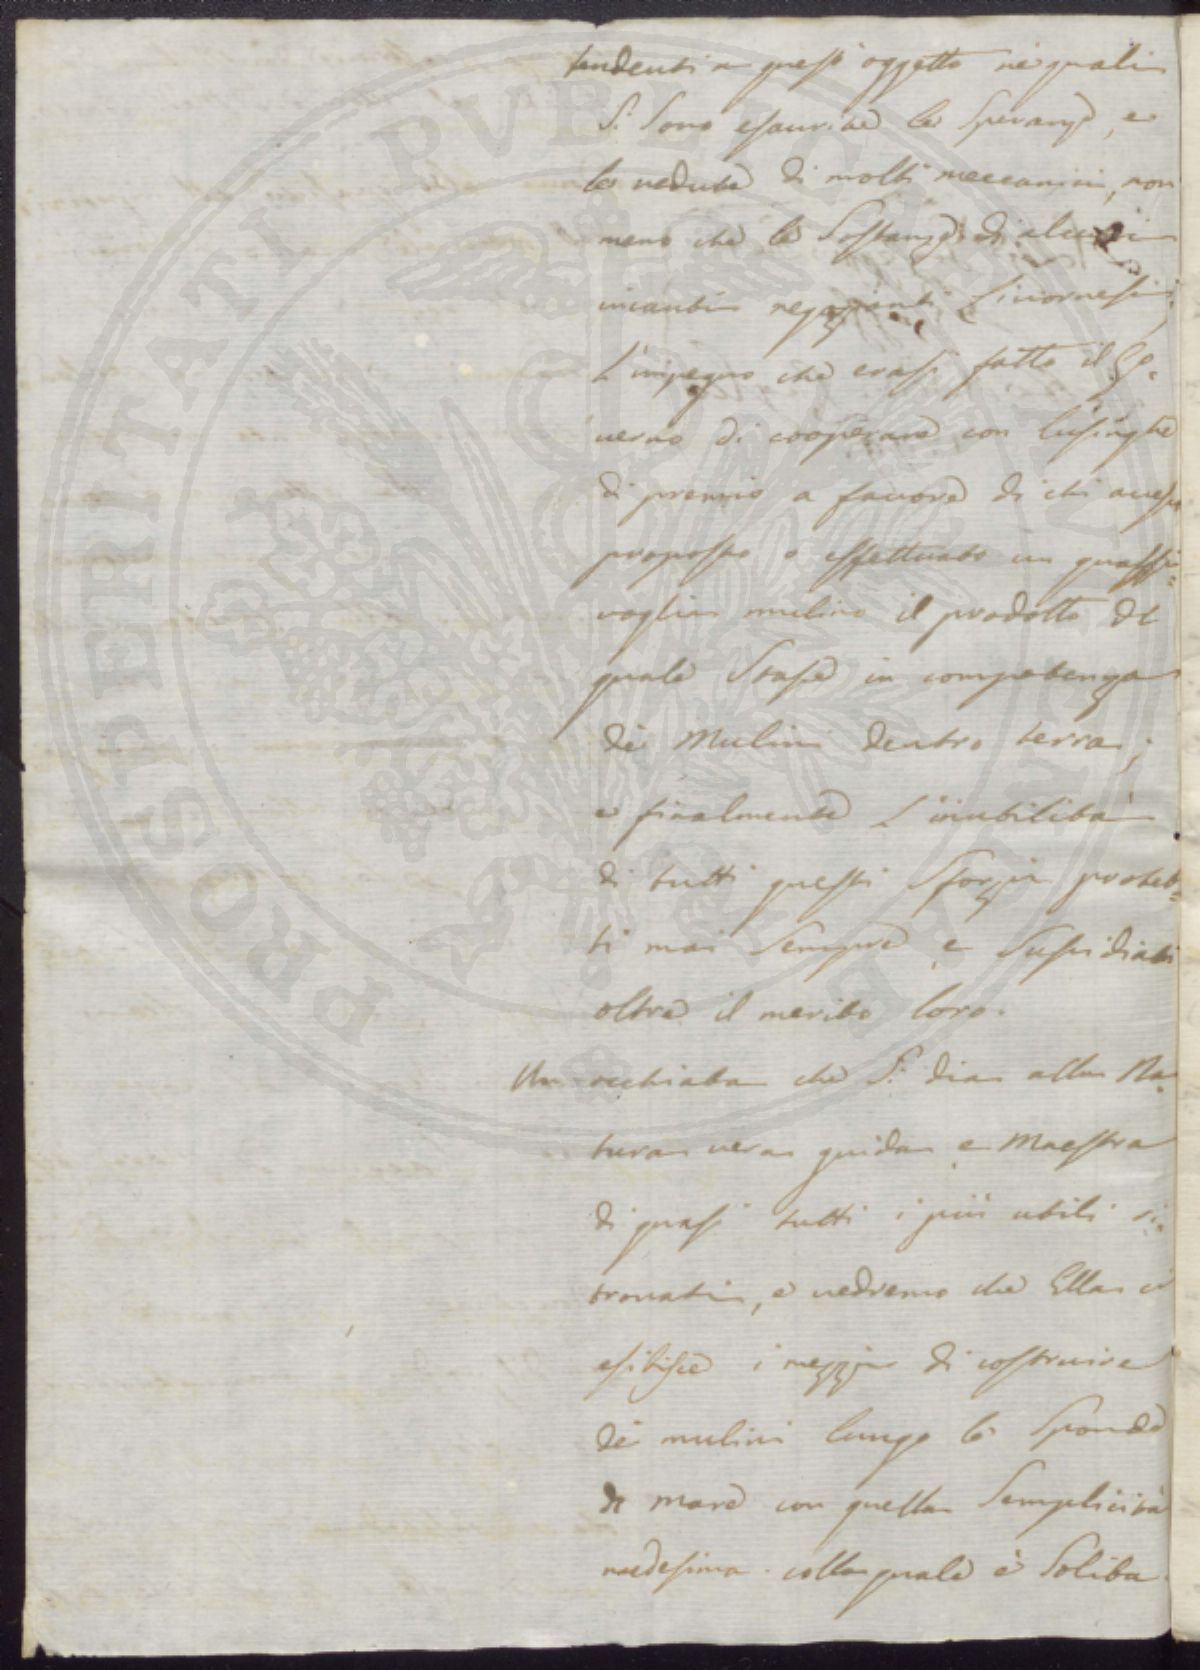 tendenti a questo oggetto ne quali
Si Sono esaurite le Speranze, e
le vedute di molti meccanici, non
meno che le Sostanze di alcuni
incauti negozianti Livornesi;
L'impegno che erasi fatto il Go-
verno di cooperare con lusinghe
di premio a favore di chi avesse
proposto o effettuato un qualsi-
voglia mulino il prodotto del
quale Stasse in competenza
dè Mulini dentro terra;
e finalmente L'inutilità
di tutti questi Sforzi protet-
ti mai Sempre, e Sussidiati
oltre il merito loro.
Un occhiata che Si dia alla Na-
tura vera guida e Maestra
di quasi tutti i più utili ri-
trovati, e vedremo che Ella ci
esibisce i mezzi di costruire
dè mulini lungo le Sponde
di mare con quella Semplicità
medesima colla quale è Solita
PROSPERITATI PVBLICAE